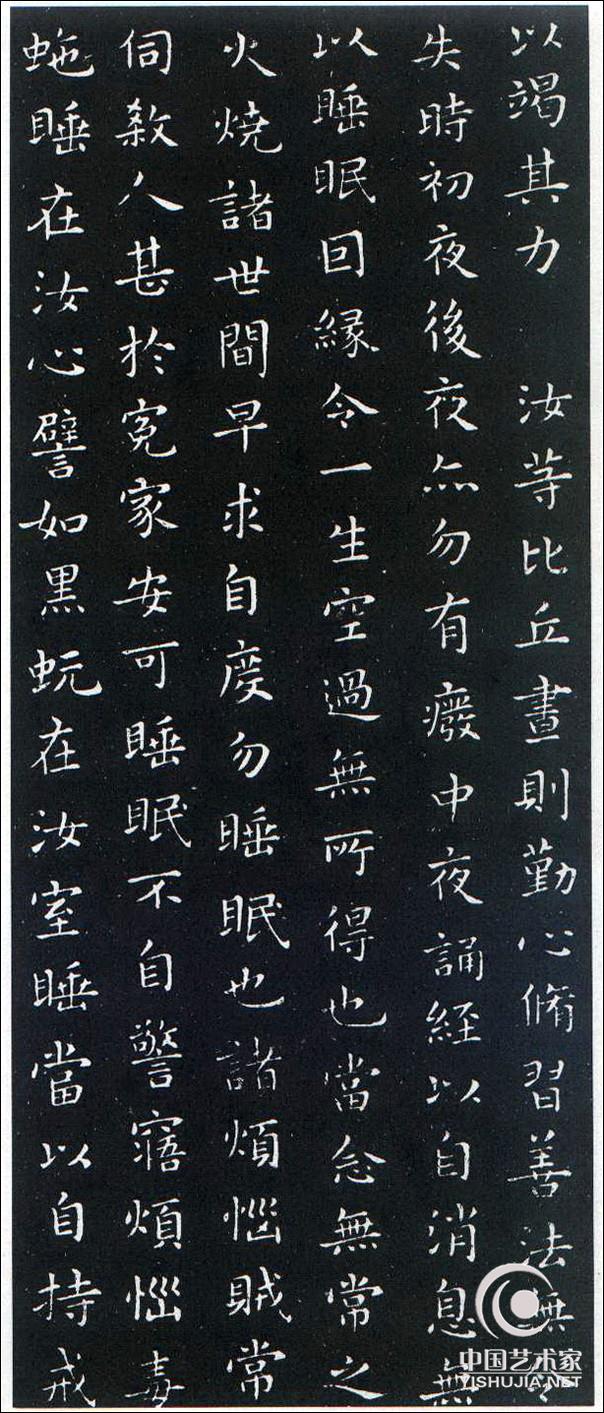 以竭其力　汝等比丘晝則勤心脩習善法無令
失時初夜後夜亦勿有癈中夜誦經以自消息無
以睡眠回緣令一生空過無所得也當念無常之
火燒諸世間早求自度勿睡眠也諸煩惱賊常
伺殺人甚於寃家安可睡眠不自警寤煩惱毒
虵睡在汝心譬如黑蚖在汝室睡當以自持戒
中国艺术家
YISHUJIA.NET